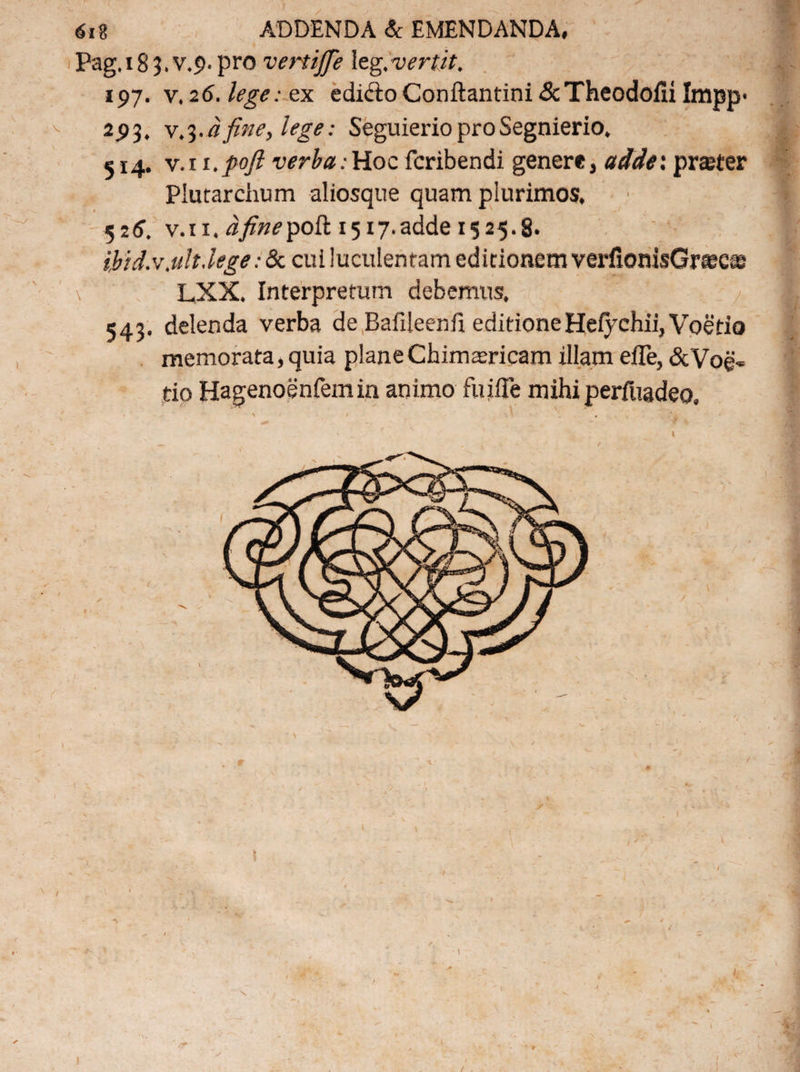 618 ADDENDA & EMENDANDA,
Pag. 183. v.9. pro vertiſſe leg. vertit.
197. v. 26. lege: ex edicto Conſtantini & Theodoſii Impp.
293. v.3. à fine, lege: Seguierio pro Segnierio.
514. v.11. poſt verba: Hoc ſcribendi genere, adde: præter
Plutarchum aliosque quam plurimos.
526. v.11. à fine poſt 1517. adde 1525. 8.
ibid. v. ult. lege: & cui luculentam editionem verſionis Græcæ
LXX. Interpretum debemus.
543. delenda verba de Baſileenſi editione Heſychii, Voëtio
memorata, quia plane Chimæricam illam eſſe, & Voë-
tio Hagenoënſem in animo fuiſſe mihi perſuadeo.